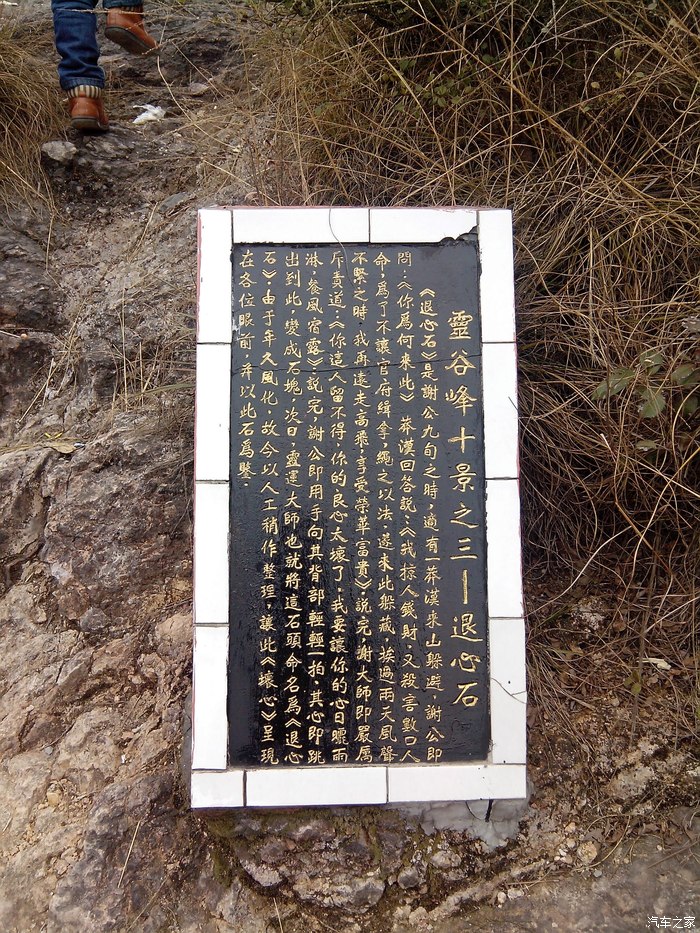 靈谷峰十景之三—退心石
《退心石》是謝公九旬之時，適有一莽漢來山躲避，謝公即
問：《你爲何來此》莽漢回答說：《我掠人錢財，又殺害數口人
命，爲了不讓官府緝拿，繩之以法，遂來此躲藏，挨過兩天風聲
不緊之時，我再遠走高飛，享受榮華富貴》，說完，謝大師即嚴厲
斥責道：《你這人留不得，你的良心太壞了，我要讓你的心日曬雨
淋，餐風宿露》，說完，謝公即用手向其背部輕輕一拍，其心即跳
出到此，變成石塊，次日，靈運大師也就將這石頭命名爲《退心
石》，由于年久風化，故今以人工稍作整理，讓此《壞心》呈現
在各位眼前，并以此石爲鑒．
汽车之家